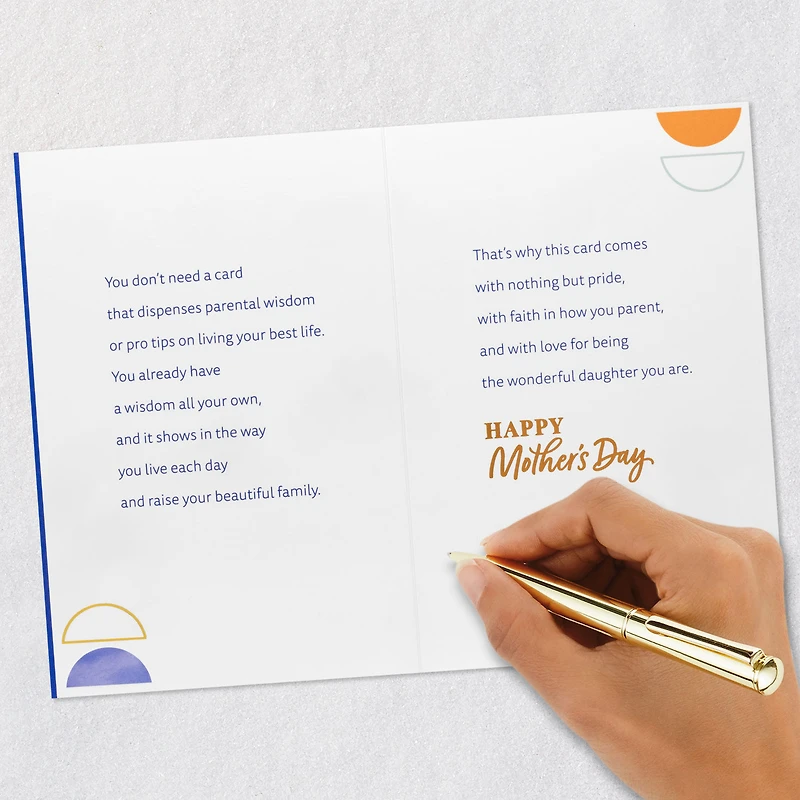 You don't need a card
that dispenses parental wisdom
or pro tips on living your best life.
You already have
a wisdom all your own,
and it shows in the way
you live each day
and raise your beautiful family.
That's why this card comes
with nothing but pride,
with faith in how you parent,
and with love for being
the wonderful daughter you are.
HAPPY
Mother's Day